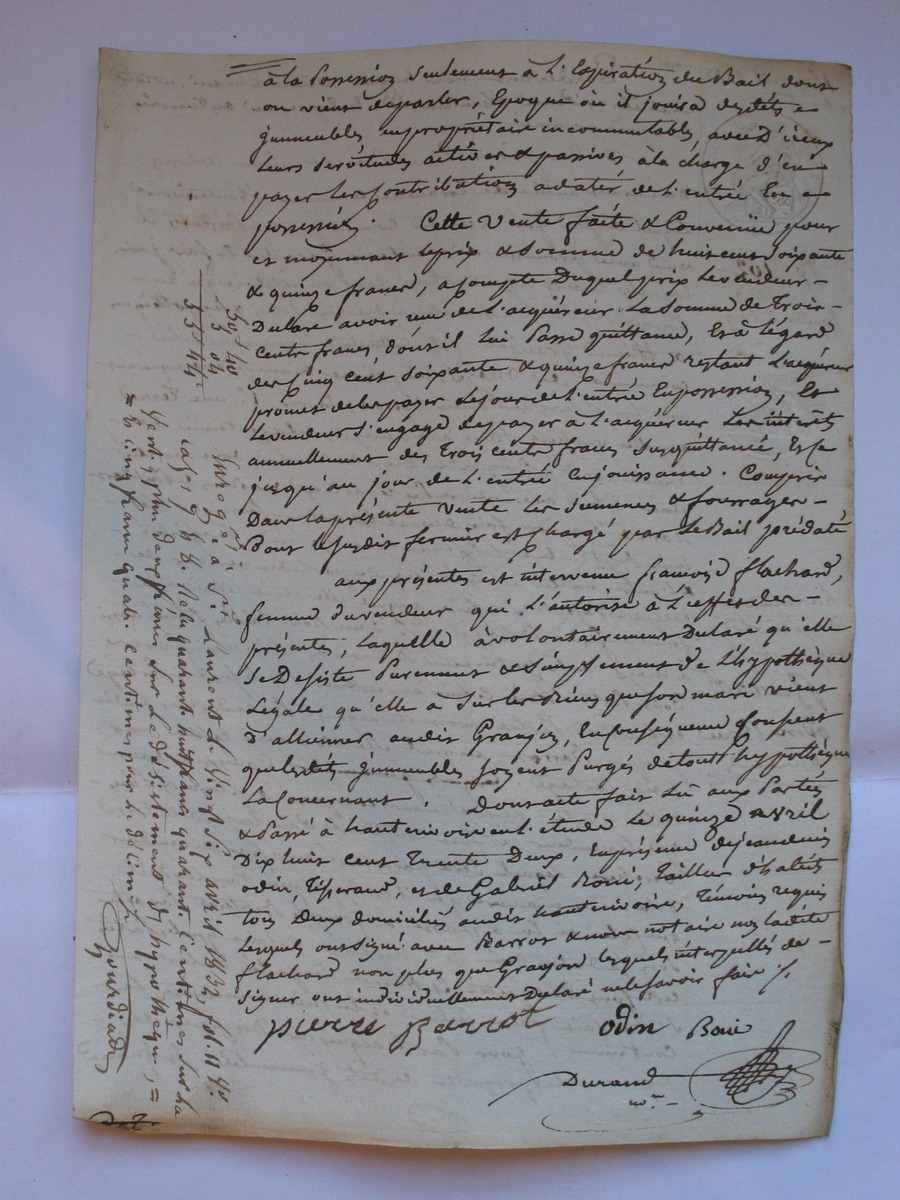 à la Possession seulement à L'Expiration du Bail dont
on vient deparler, Epoque où il jouira desdits =
jmmeubles enpropriétaire incommutables, avec D'iceux
Leurs servitudes actives & passives à la charge d'en
payer Les Contributions adater de L'entrée En =
possession. Cette Vente faite & Convenue pour
et moyennant leprix & Somme de huit cent soixante
& quinze francs, acompte Duquel prix Le vendeur =
Declare avoir reçu de L'acquéreur La Somme de Trois =
Cents francs, dont il lui Passe quittance, Et à L'égard
des Cinq Cent soixante & quinze francs restant L'acquéreur
promet de les payer Lejour de L'entrée Enpossession, Et
Levendeur s'engage depayer à L'acquéreur Les intérêts
annuellement des Trois cents francs susquittancé, Et Ce
jusqu'au jour de L'entrée enjouissance. Compris
Dans laprésente Vente Les semences & fourrages =
Dont le susdit fermier est Chargé par Le Bail prédaté
aux présentes est intervenue françoise flachard,
femme du vendeur qui L'autorise à L'effet des =
présentes, Laquelle à volontairement Declaré qu'elle
Se Desiste Purement & Simplement De L'hypothèque
Légale qu'elle à Sur les Biens que son mari vient
D'alliener audit Granjon, En Conséquence Consent
que lesdits jmmeubles soyent Purgés de tout hypothèque
La Concernant. Dont acte fait Lu aux Parties
& Passé à hauterivoire en L'étude Le quinze avril
Dix huit cent Trente Deux, En présence de jean denis
odin, Tisserand, et de Gabriel Boné, Tailleur d'habits
tous Deux domiciliés audit hauterivoire, Témoins requis
Lesquels ont signé avec Barrot & nous notaire non ladite
flachard non plus que Granjon lesquels interpellés de =
signer ont individuellement Declaré ne le savoir faire ./.
pierre Barrot odin Boné
Durand
nre
50, f 40
5 04
55 f 44
Enregé à St Laurent Le Vingt six avril 1832, fol. 11 Vo
cases Reçu quarante huit francs quarante centimes sur la
Vente, plus deux francs sur Le désistement d'hypothèque, =
= Et cinq francs quatre centimes pour le décime ./.